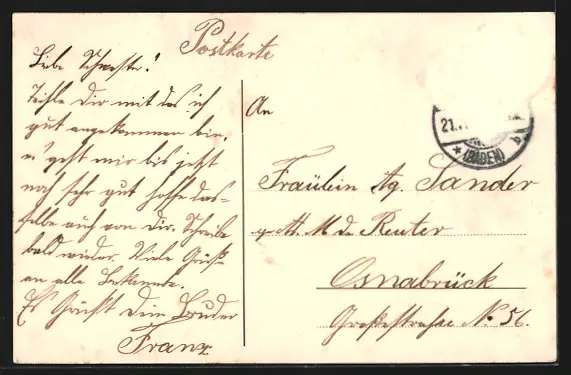 Postkarte
Liebe Schweste!
Teihle Dir mit das ich
gut angekommen bin,
es geht mir bis jetzt
noch sehr gut hoffe das-
selbe auch von Dir. Schreibe
bald wieder. Viele Grüße
an alle Bekannte.
Es Grüßt Dein Bruder
Franz
An
21.
(BADEN)
Fräulein Ag. Sander
M de Reuter
Osnabrück
Großestraße No. 56.